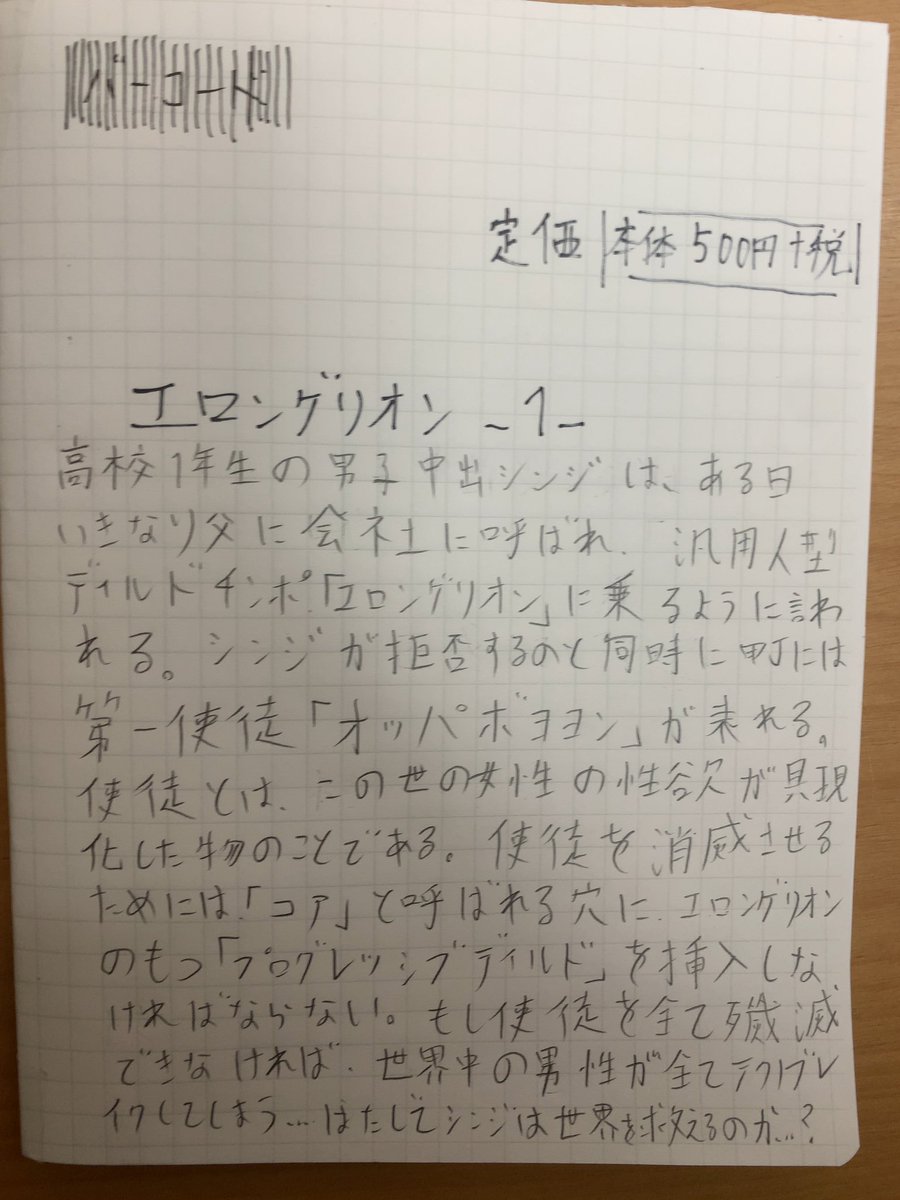 バーコード
定価 本体 500円+税
エロンゲリオン -1-
高校1年生の男子中出シンジは、ある日
いきなり父に会社に呼ばれ、汎用人型
ディルドチンポ「エロンゲリオン」に乗るように言わ
れる。シンジが拒否するのと同時に町には
第一使徒「オッパボヨヨン」が表れる。
使徒とは、この世の女性の性欲が具現
化した物のことである。使徒を消威させる
ためには、「コア」と呼ばれる穴に、エロンゲリオン
のもつ「プログレッシブディルド」を挿入しな
ければならない。もし使徒を全て殲滅
できなければ、世界中の男性が全てテクノブレ
イクしてしまう…はたしてシンジは世界を救えるのか…?